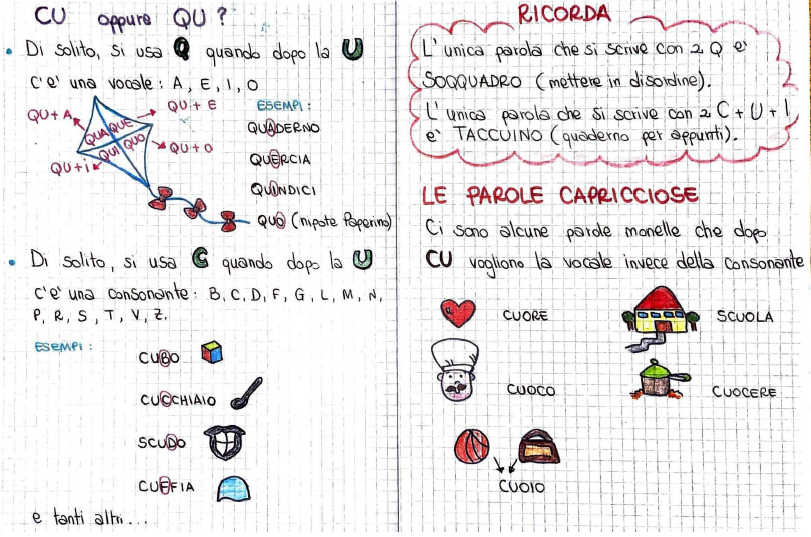 CU oppure QU ?
• Di solito, si usa Q quando dopo la U
c'e' una vocale : A, E, I, O
QU+A
QU+E
QU+O
QU+i
QUA
QUE
QUI
QUO
ESEMPI :
QUADERNO
QUERCIA
QUINDICI
QUO (nipote Paperino)
• Di solito, si usa C quando dopo la U
c'e' una consonante : B, C, D, F, G, L, M, N,
P, R, S, T, V, Z.
ESEMPI :
CUBO
CUCCHIAIO
SCUDO
CUFFIA
e tanti altri...
RICORDA
L'unica parola che si scrive con 2 Q e'
SOQQUADRO (mettere in disordine).
L'unica parola che si scrive con 2 C + U + I
e' TACCUINO (quaderno per appunti).
LE PAROLE CAPRICCIOSE
Ci sono alcune parole monelle che dopo
CU vogliono la vocale invece della consonante
CUORE
SCUOLA
CUOCO
CUOCERE
CUOIO